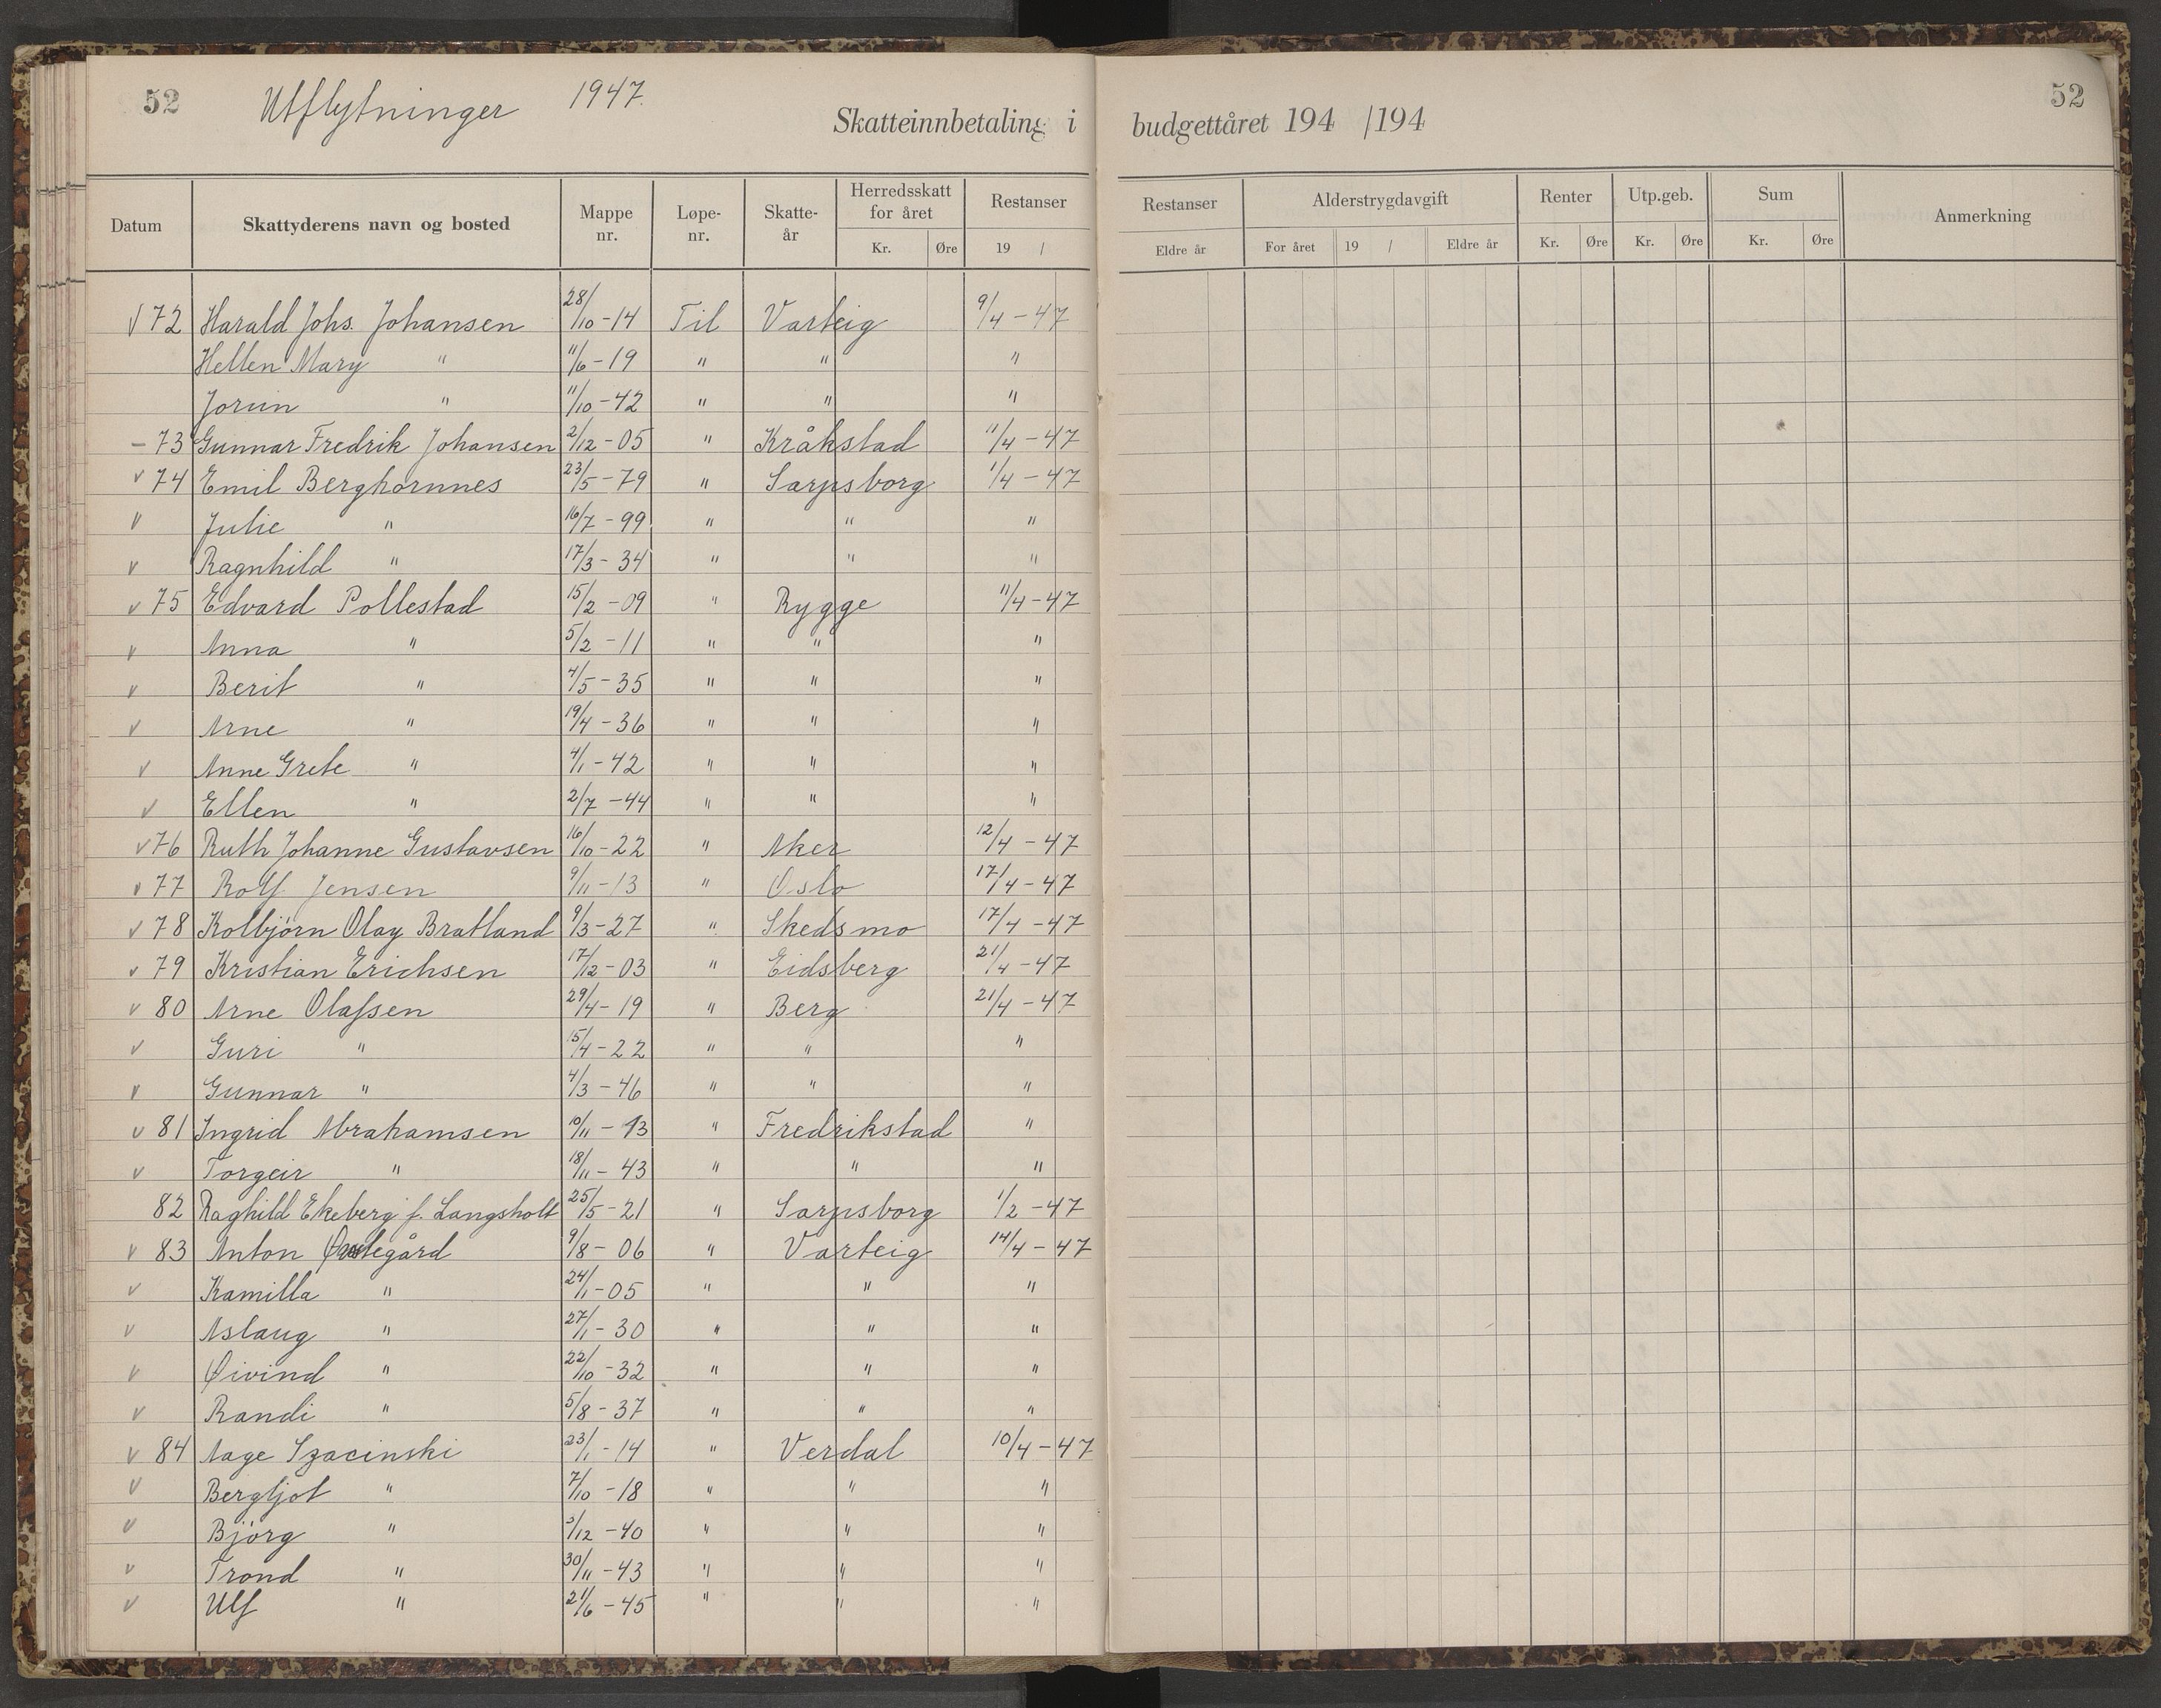 52 Utflytninger 1947. 52
Skatteinnbetaling i budgettåret 194 /194
Datum Skattyderens navn og bosted Mappe nr. Løpe- nr. Skatte- år Herredsskatt for året Kr. Øre Restanser 19 / Restanser Eldre år Alderstrygdavgift For året 19 / Eldre år Renter Kr. Øre Utp.geb. Kr. Øre Sum Kr. Øre Anmerkning
√ 72 Harald Johs. Johansen 28/10-14 Til Varteig 9/4-47
Hellen Mary " 11/6-19 " " "
Jorun " 11/10-42 " " "
- 73 Gunnar Fredrik Johansen 2/12-05 " Kråkstad 11/4-47
v 74 Emil Berghornnes 23/5-79 " Sarpsborg 1/4-47
v Julie " 16/7-99 " " "
v Ragnhild " 17/3-34 " " "
v 75 Edvard Pollestad 15/2-09 " Rygge 11/4-47
v Anna " 5/2-11 " " "
v Berit " 4/5-35 " " "
v Arne " 19/4-36 " " "
v Anne Grete " 4/1-42 " " "
v Ellen " 2/7-44 " " "
v 76 Ruth Johanne Gustavsen 16/10-22 " Aker 12/4-47
v 77 Rolf Jensen 9/11-13 " Oslo 17/4-47
v 78 Kolbjörn Olav Bratland 9/3-27 " Skedsmo 17/4-47
v 79 Kristian Erichsen 17/12-03 " Eidsberg 21/4-47
v 80 Arne Olafsen 29/4-19 " Berg 21/4-47
v Guri " 15/4-22 " " "
v Gunnar " 4/3-46 " " "
v 81 Ingrid Abrahamsen 10/11-13 " Fredrikstad "
v Torgeir " 18/11-43 " " "
82 Raghild Ekeberg f. Langsholt 25/5-21 " Sarpsborg 1/2-47
v 83 Anton 9/8-06 " Varteig 14/4-47
v Kamilla " 24/1-05 " " "
v Aslaug " 27/1-30 " " "
v Øivind " 22/10-32 " " "
v Randi " 5/8-37 " " "
v 84 Aage Szacinski 23/1-14 " Verdal 10/4-47
v Bergljot " 7/10-18 " " "
v Björg " /12-40 " " "
v Trond " 30/11-43 " " "
v Ulf " 21/6-45 " " "